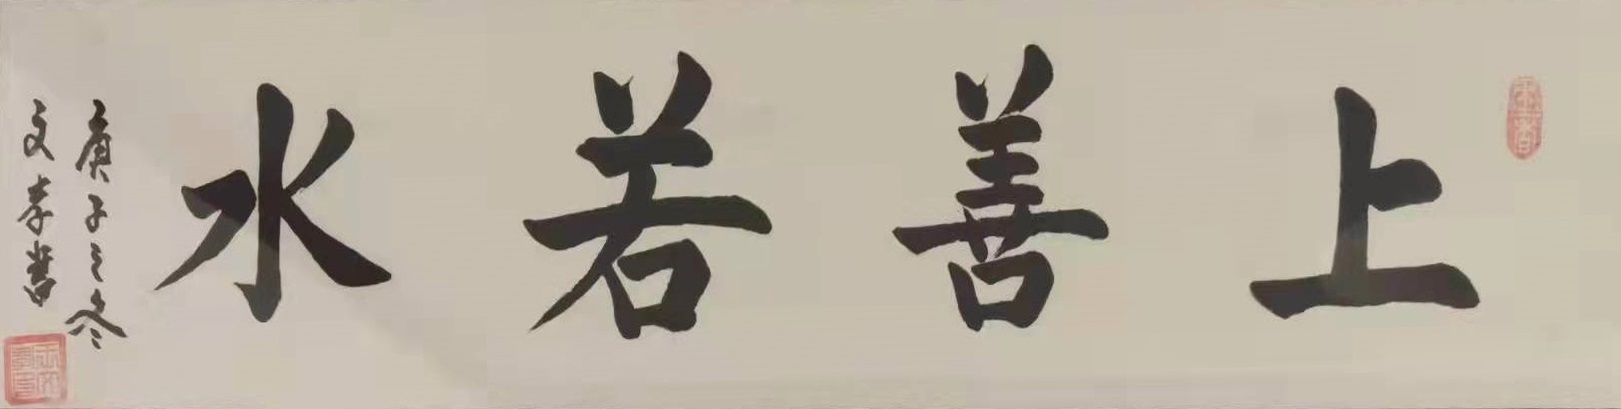 上善若水
庚子之冬
文孝書